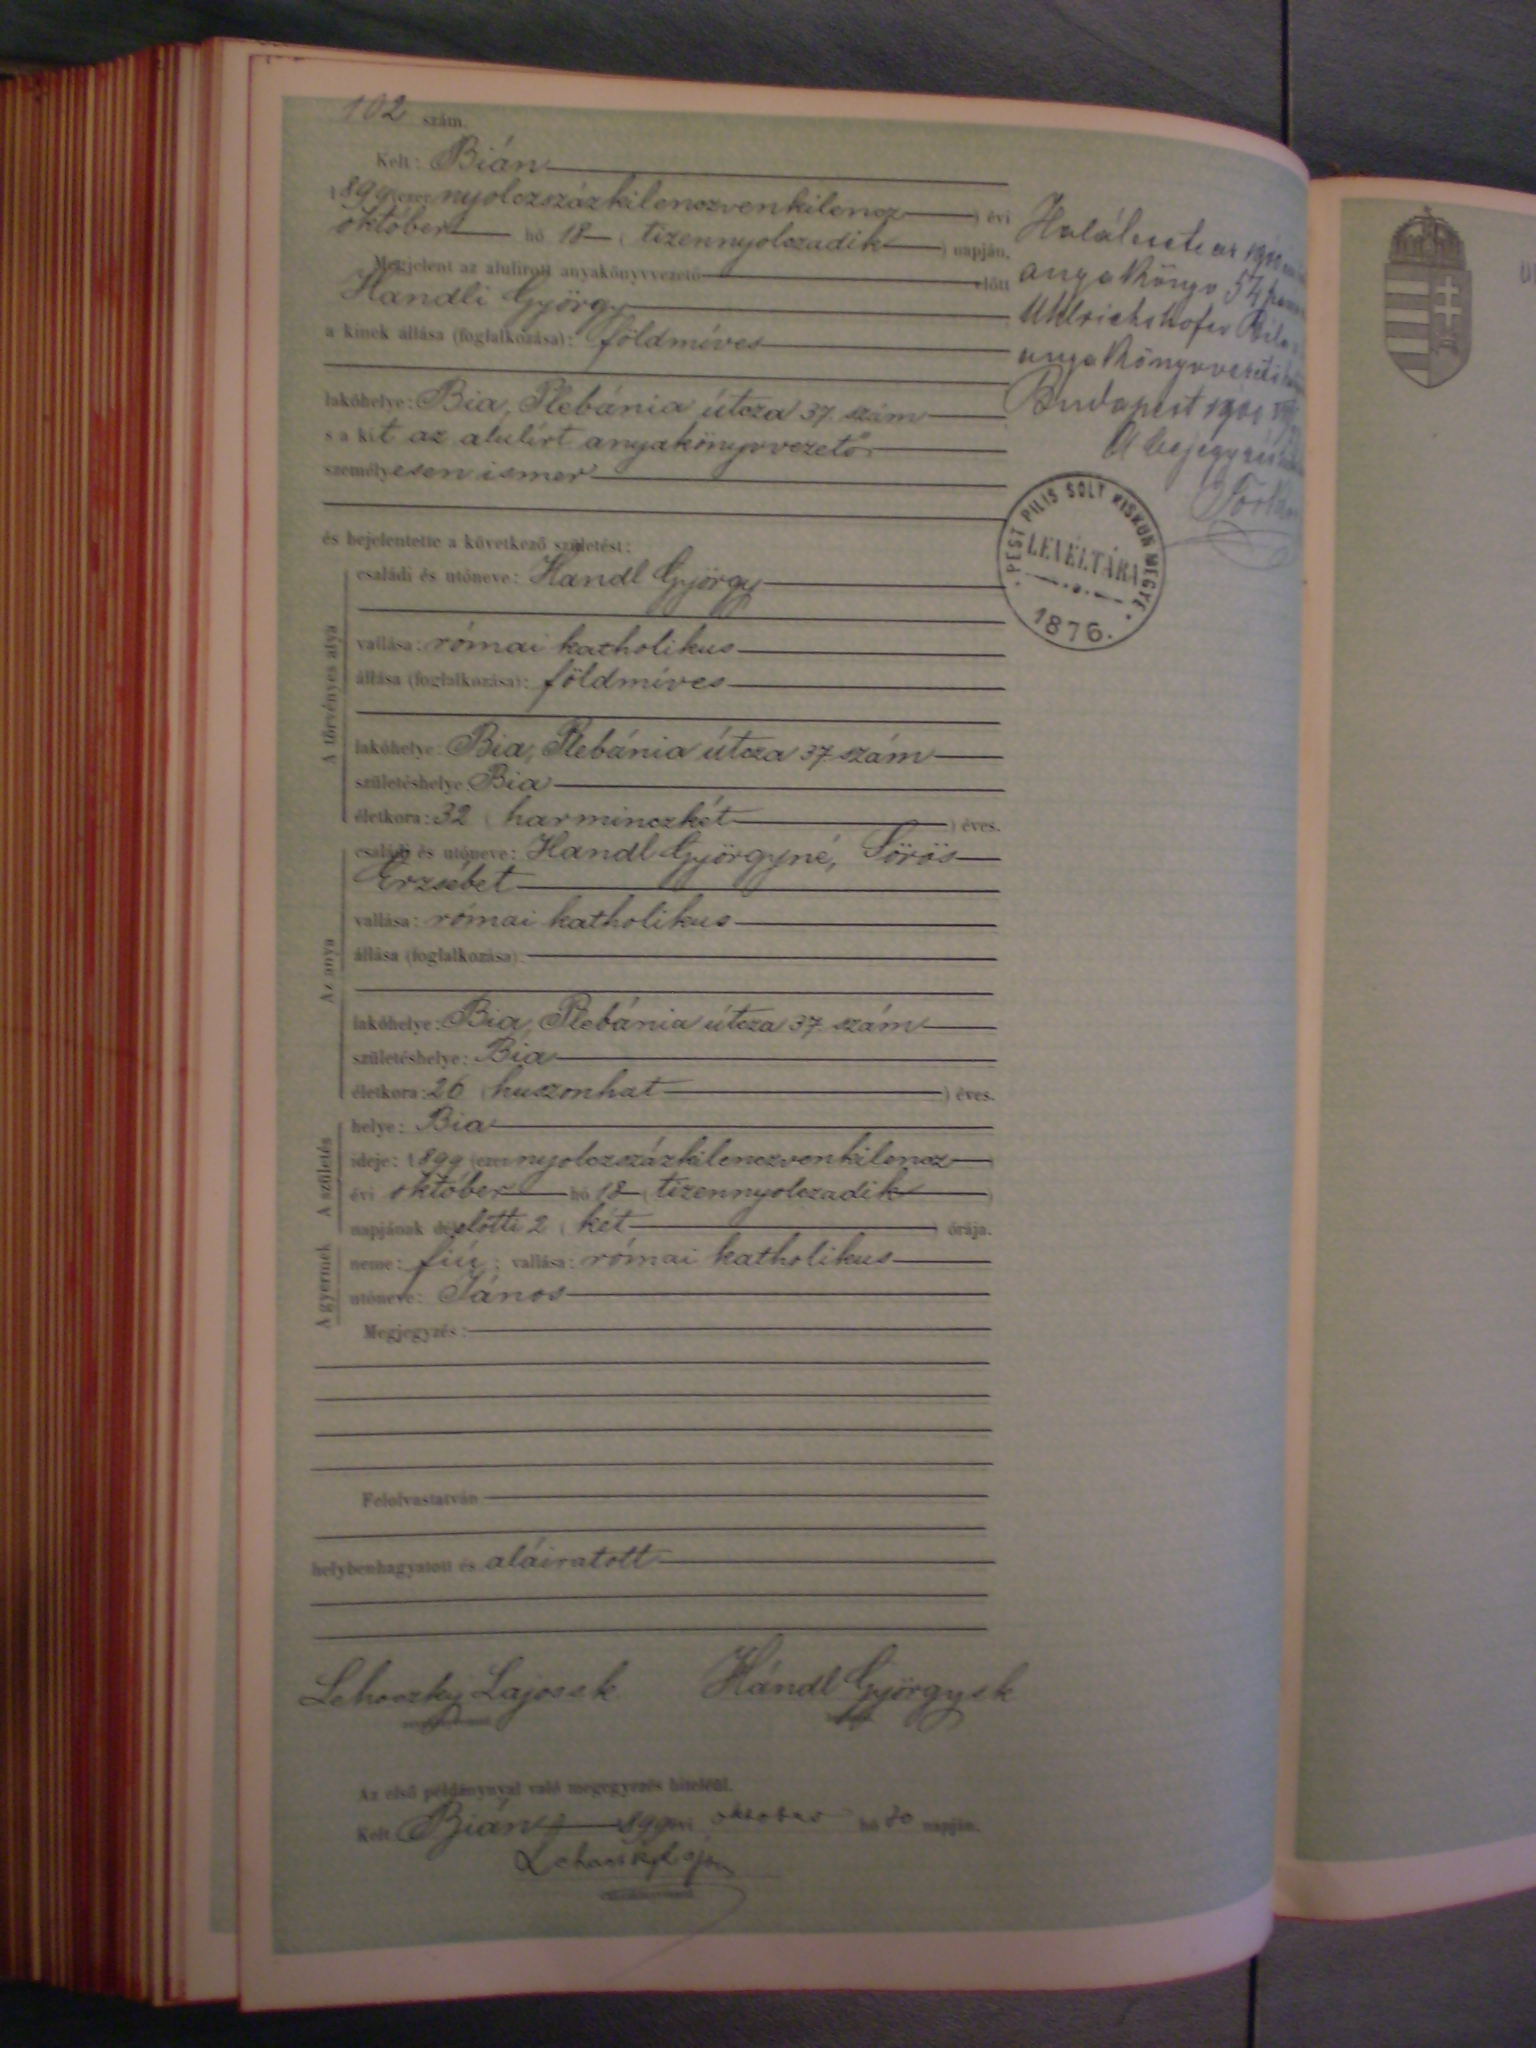 102 szám.
Kelt: Bián
1899 (ezer nyolczszázkilenczvenkilencz) évi
október hó 18 (tizennyolczadik) napján.
Megjelent az alulirott anyakönyvvezető előtt
Handli György
a kinek állása (foglalkozása): földmíves
lakóhelye: Bia, Plebánia útcza 37. szám
s a kit az alulírt anyakönyvvezető
személyesen ismer
és bejelentette a következő születést:
A törvényes atya
családi és utóneve: Handl György
vallása: római katholikus
állása (foglalkozása): földmíves
lakóhelye: Bia, Plebánia útcza 37 szám
születéshelye Bia
életkora: 32 (harminczkét) éves.
Az anya
családi és utóneve: Handl Györgyné, Sörös
Erzsébet
vallása: római katholikus
állása (foglalkozása):
lakóhelye: Bia, Plebánia útcza 37 szám
születéshelye: Bia
életkora: 26 (huszonhat) éves.
A születés
helye: Bia
ideje: 1899 (ezer nyolczszázkilenczvenkilencz
évi október hó 18 (tizennyolczadik)
napjának délelőtti 2 (két) órája.
A gyermek
neme: fiú; vallása: római katholikus
utóneve: János
Megjegyzés:
Felolvastatván
helybenhagyatott és aláiratott
Lehoczky Lajos sk Hándl György sk
Az első példánynyal való megegyezés hiteléül.
Kelt Bián 899 évi október hó 20 napján.
Halálesete az
anyakönyv 54
Uhlrichshofer Béla
anyakönyvvezető
Budapest
A bejegyzés
PEST PILIS SOLT KISKUN MEGYE
LEVÉLTÁRA
1876.